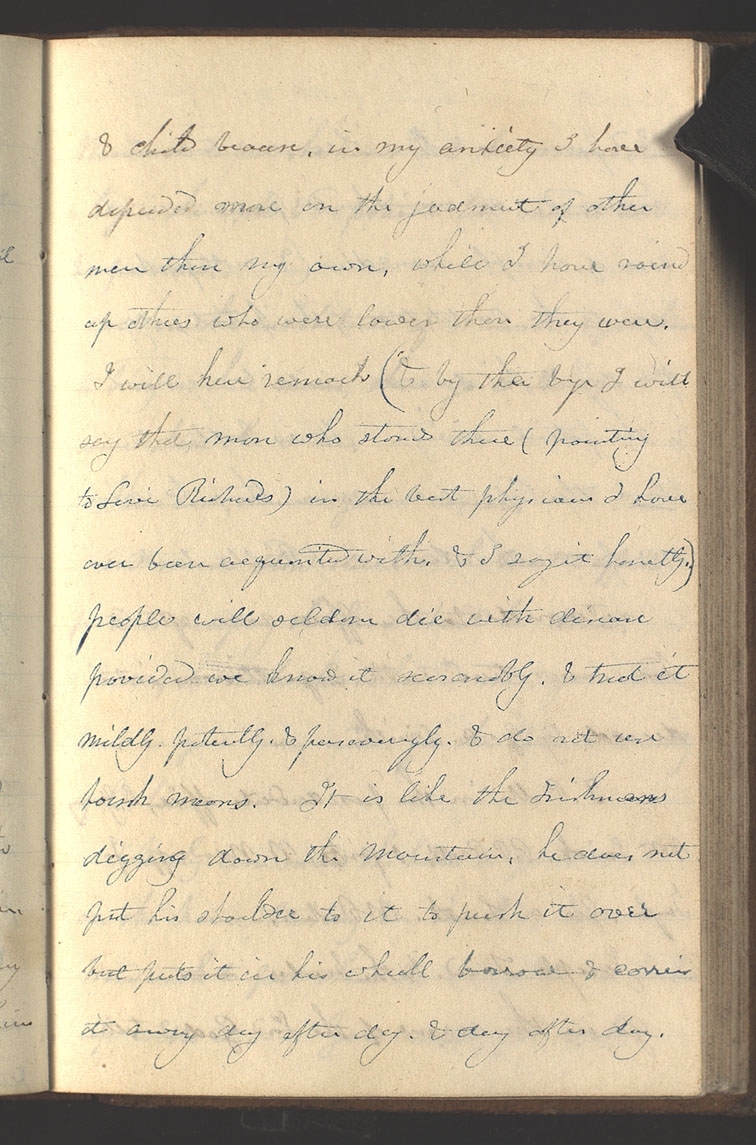 & child because, in my anxiety I have
depended more on the judment of other
men than my own, while I have raised
up others who were lower than they were.
I will here remark (& by the by I will
say that man who stands there (pointing
to Levi Richards) is the best physician I have
ever been acquainted with. & I say it honestly.)
people will seldom die with disease
provided we know it seasonably. & treat it
mildly. patiently. & perseveringly. & do not use
harsh means. It is like the Irishmans
digging down the mountain, he does not
put his shoulder to it to push it over
but puts it in his wheell barrow & carries
it away day after day. & day after day.